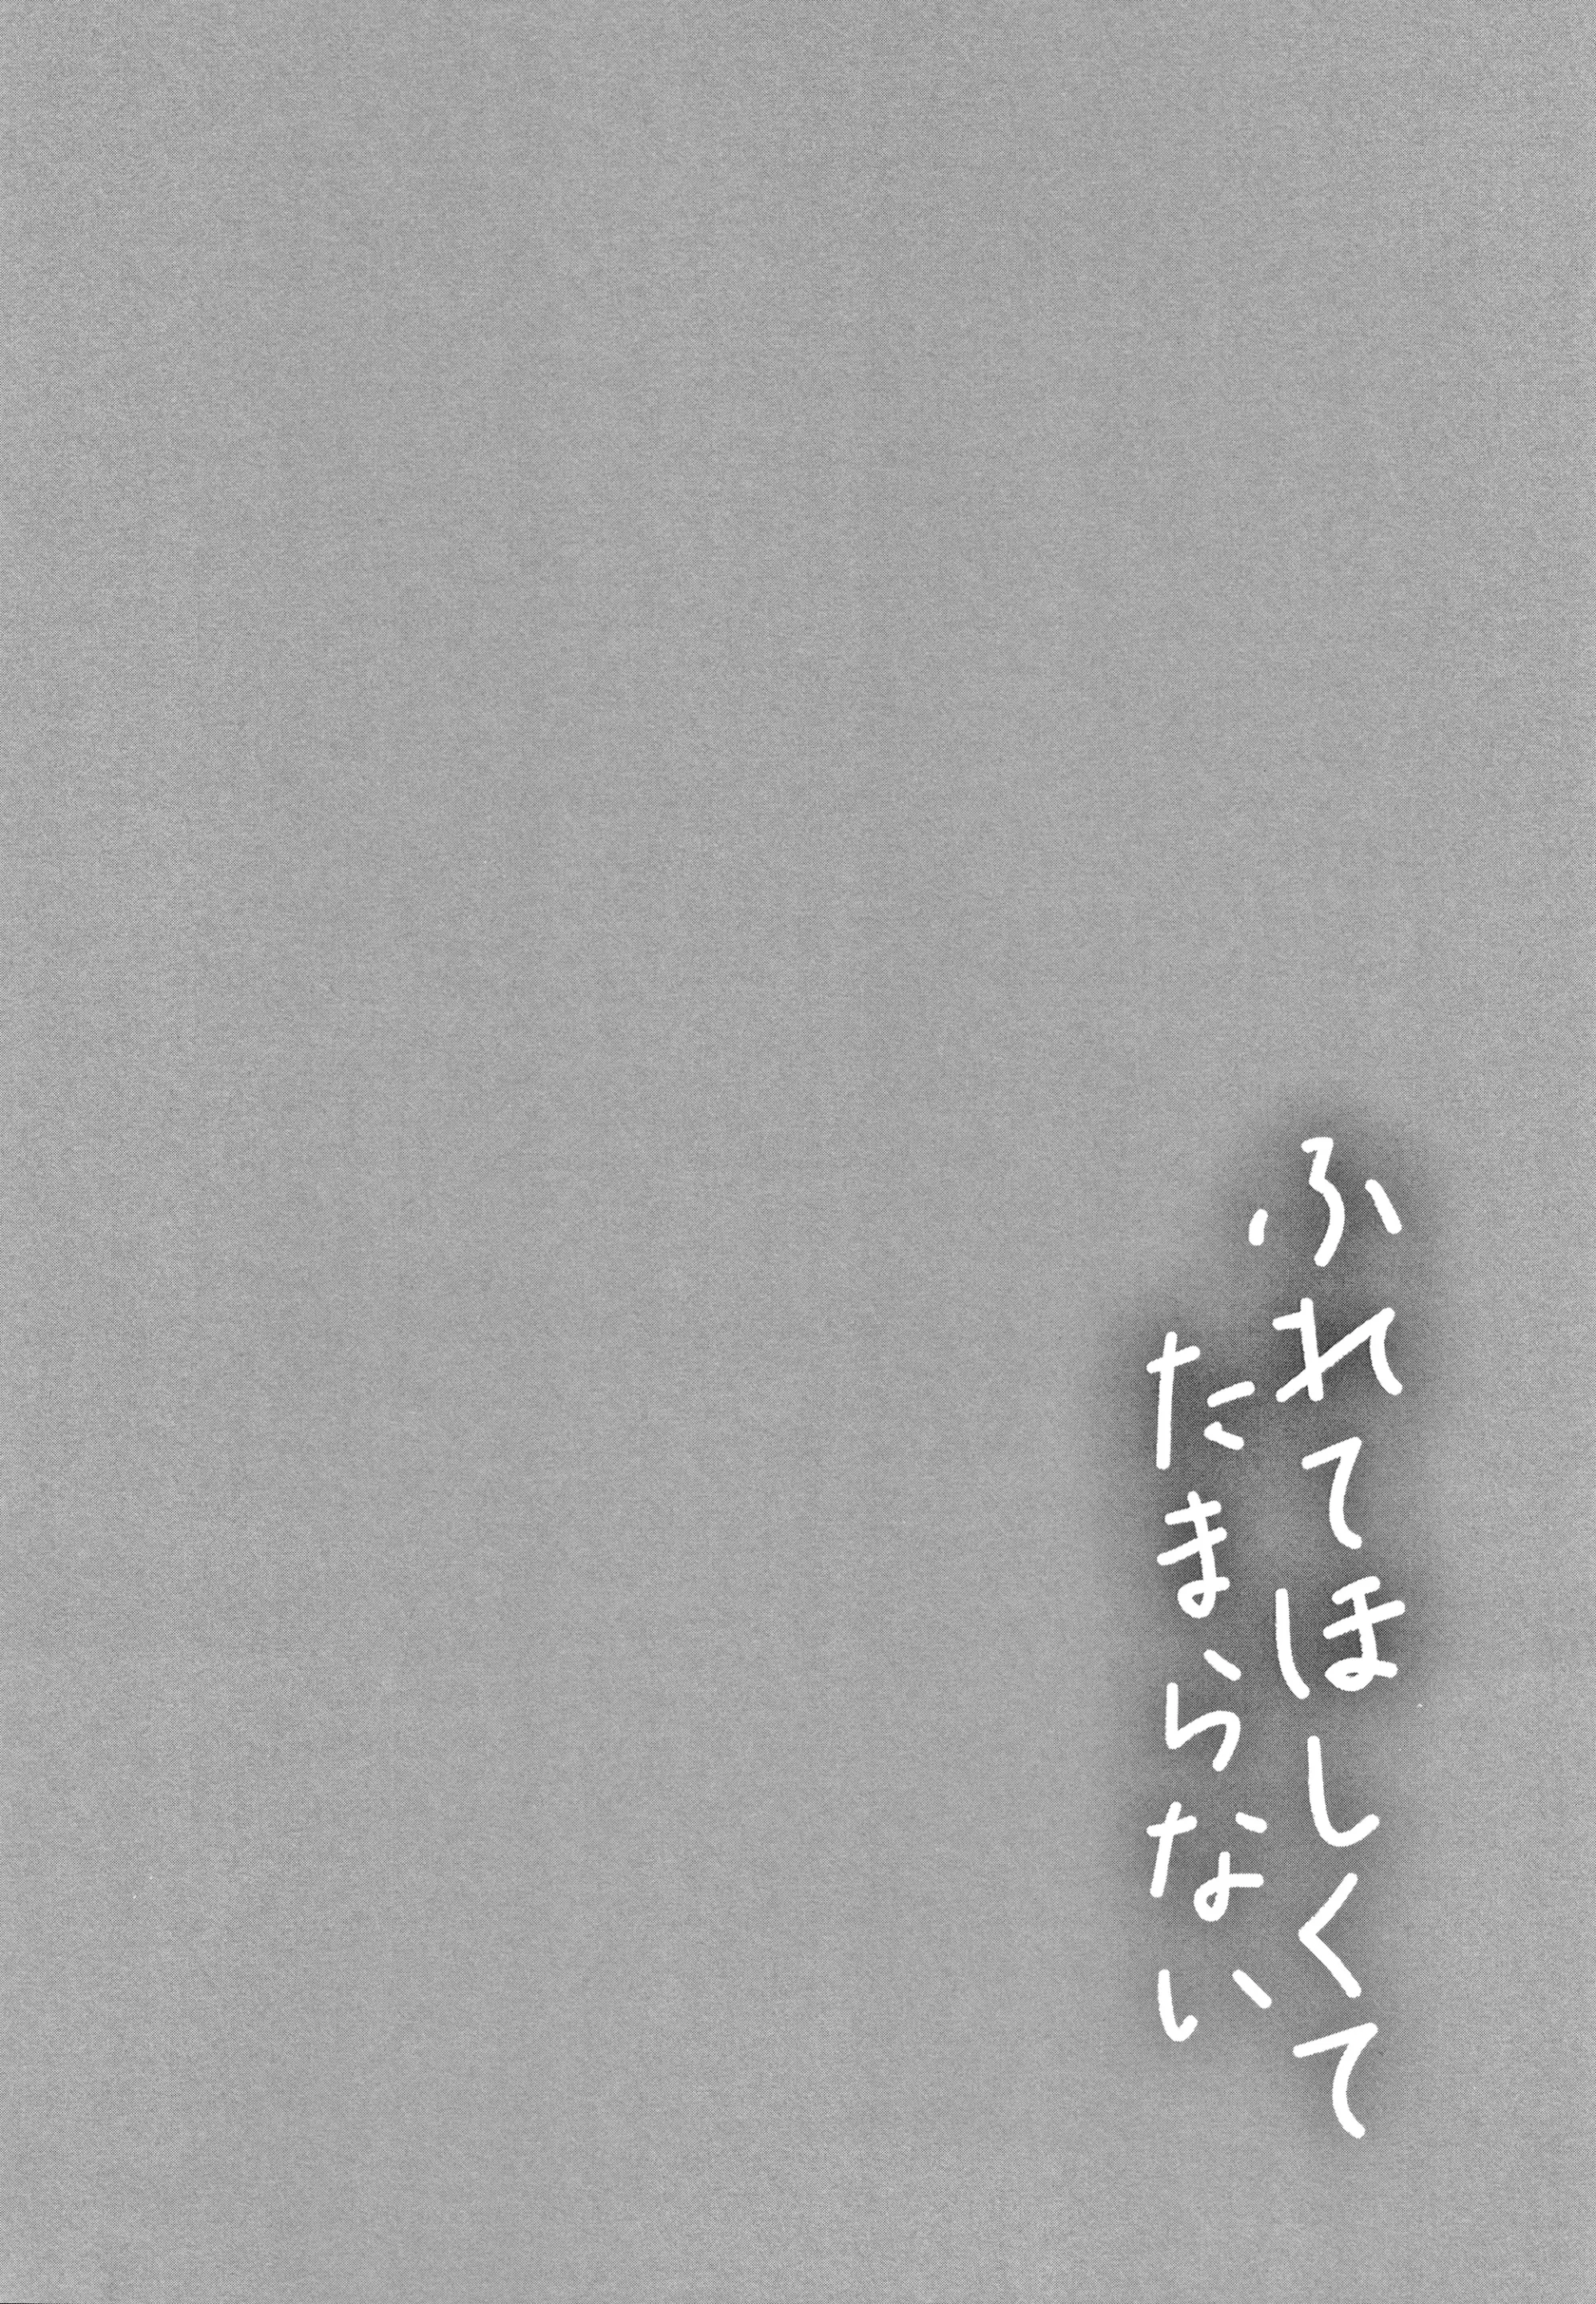 ふれてほしくて
たまらない